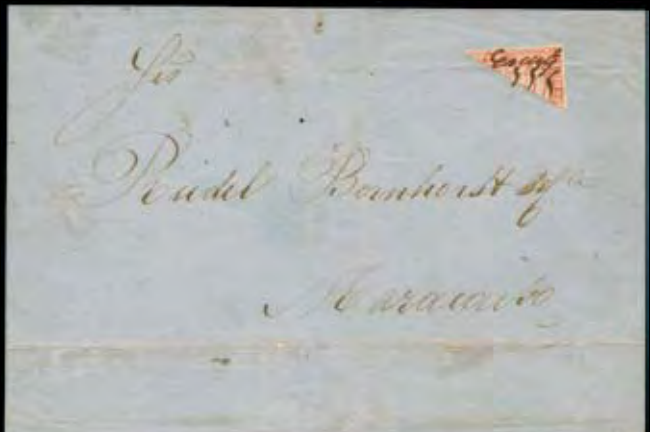 Srs
Riedel Bornhorst y Cª
Maracaibo